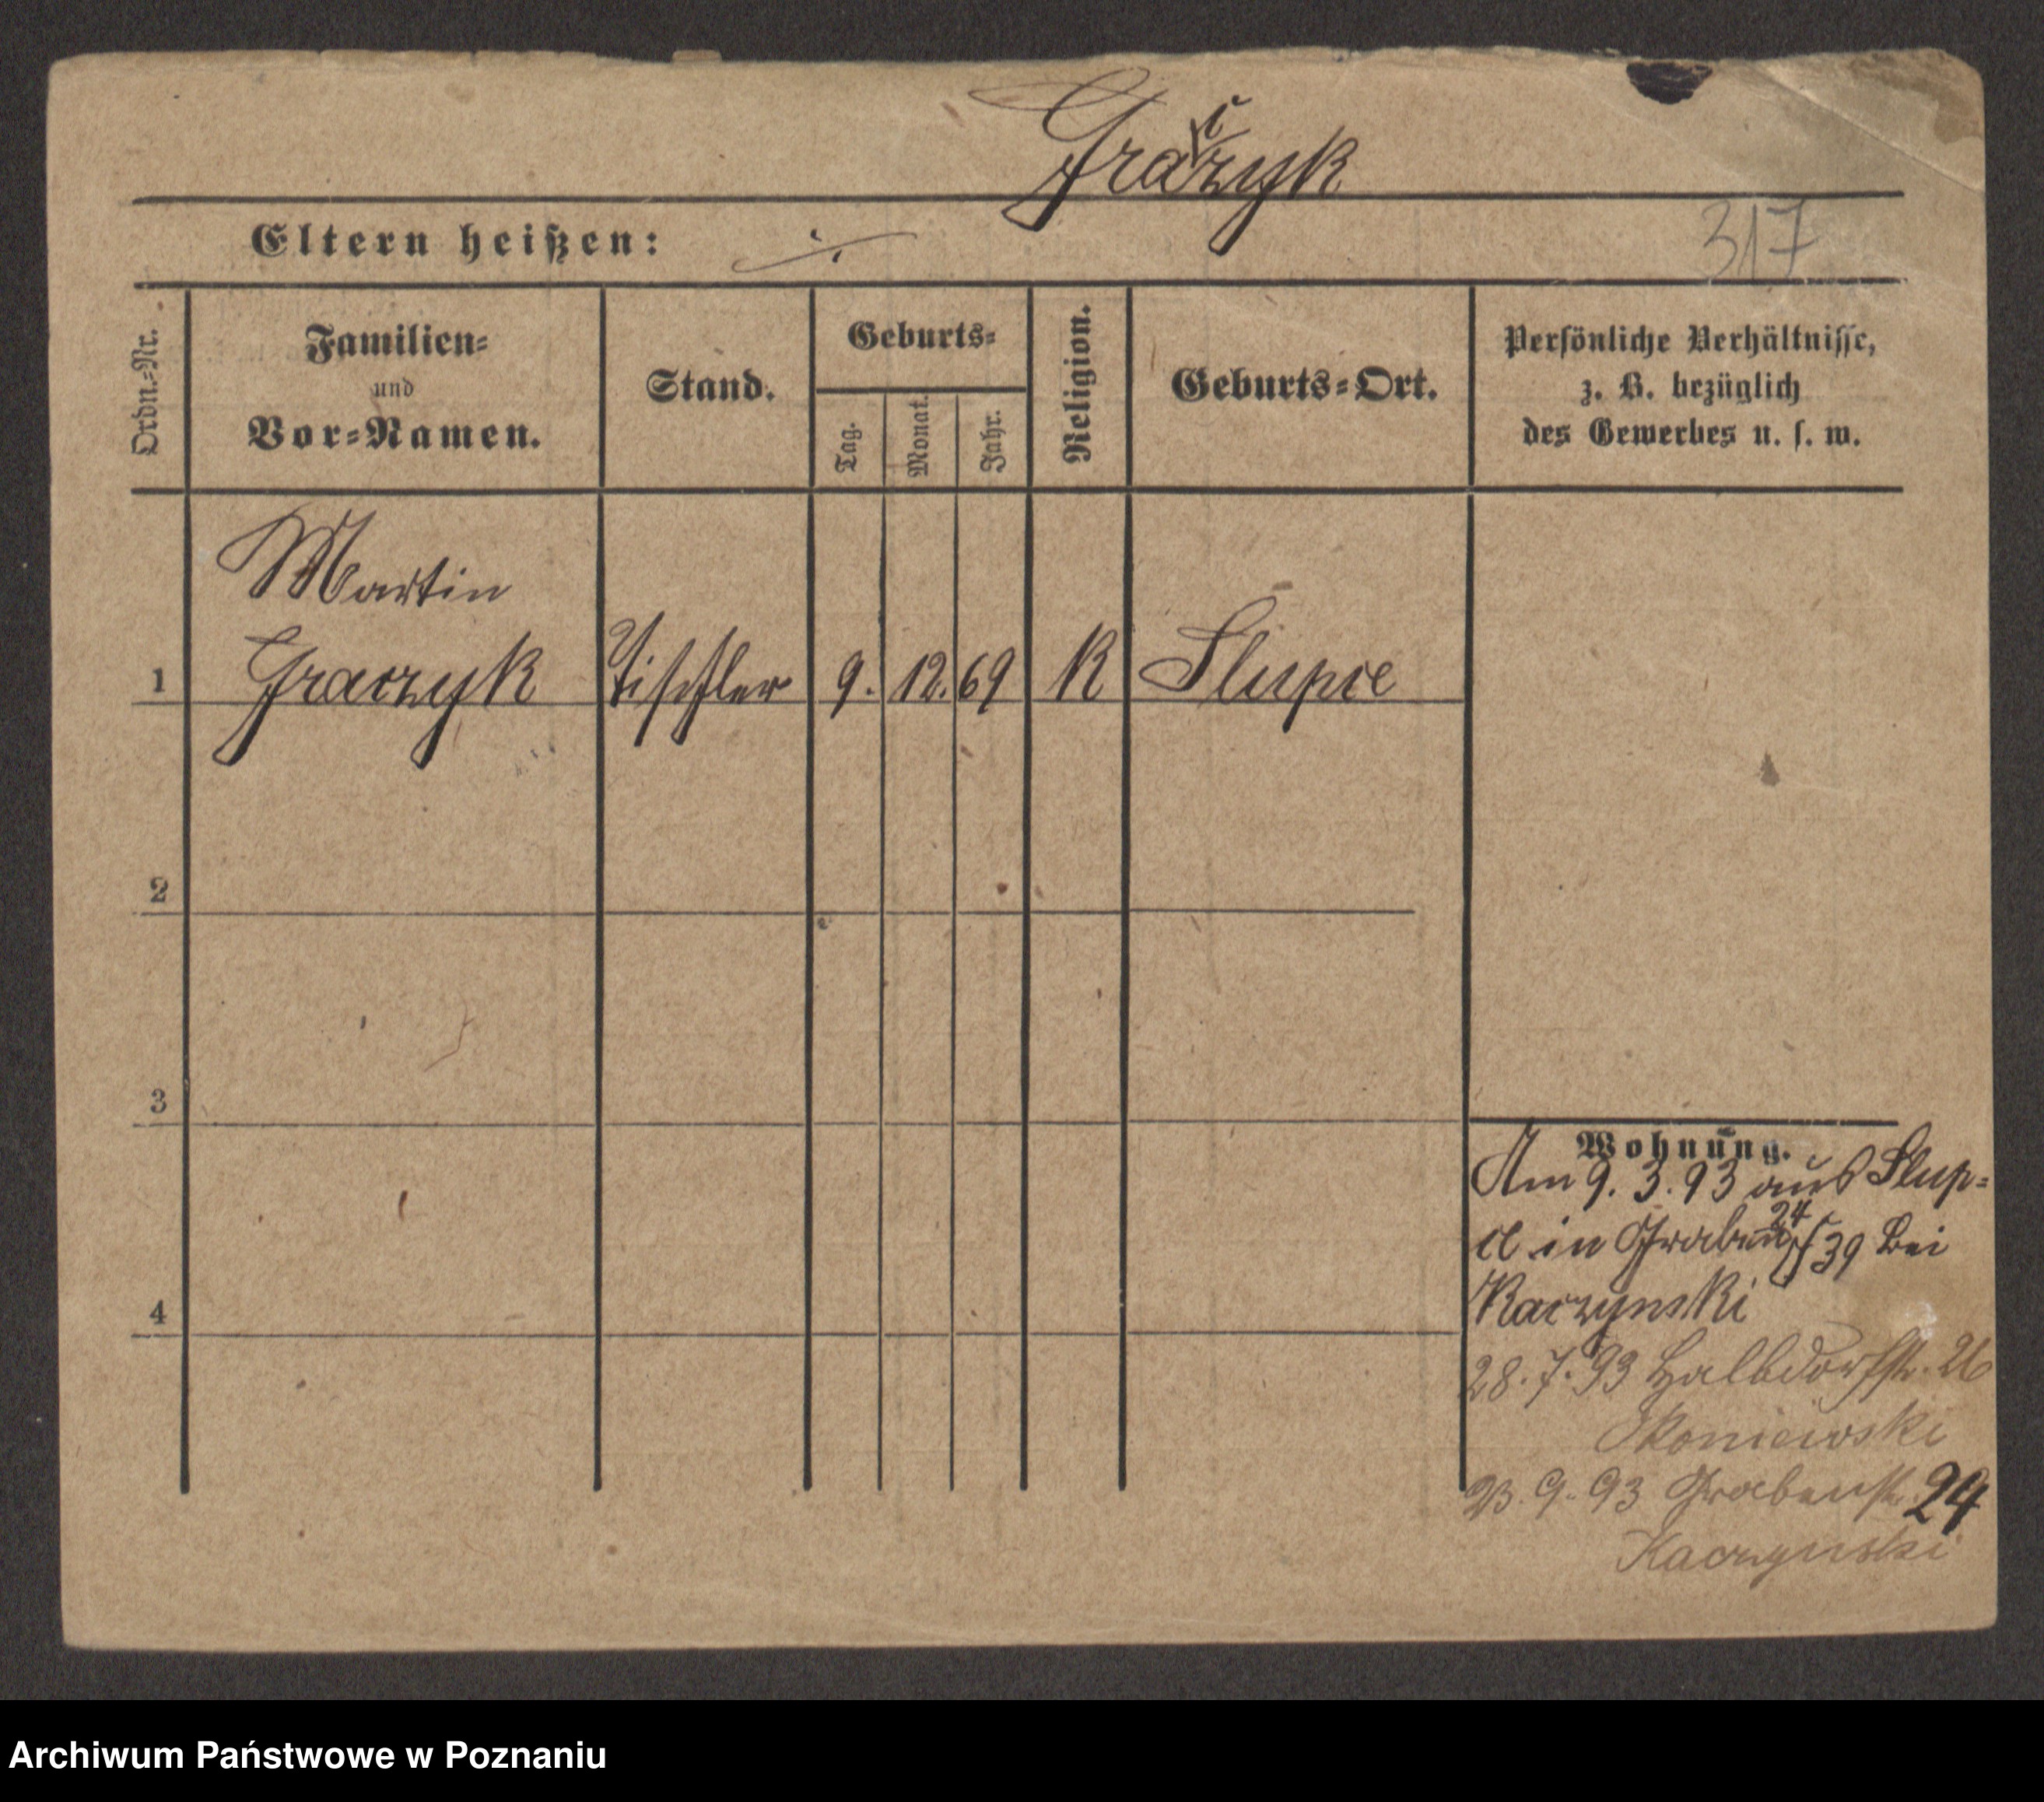 Graczyk
Eltern heißen: ./.
317
Ordn.-Nr.
Familien-
und
Vor-Namen.
Stand.
Geburts-
Tag.
Monat.
Jahr.
Religion.
Geburts-Ort.
Persönliche Verhältnisse,
z. B. bezüglich
des Gewerbes u. s. w.
Martin
1 Graczyk Tischler 9. 12. 69 K Slupce
2
3
4
Wohnung.
Am 9. 3. 93 aus Slup-
ce in Graben 24 39 bei
Kaczynski
28. 7. 93 Halbdorfstr. 26
Skoniewski
23. 9. 93 Grabenstr. 24
Kaczynski
Archiwum Państwowe w Poznaniu